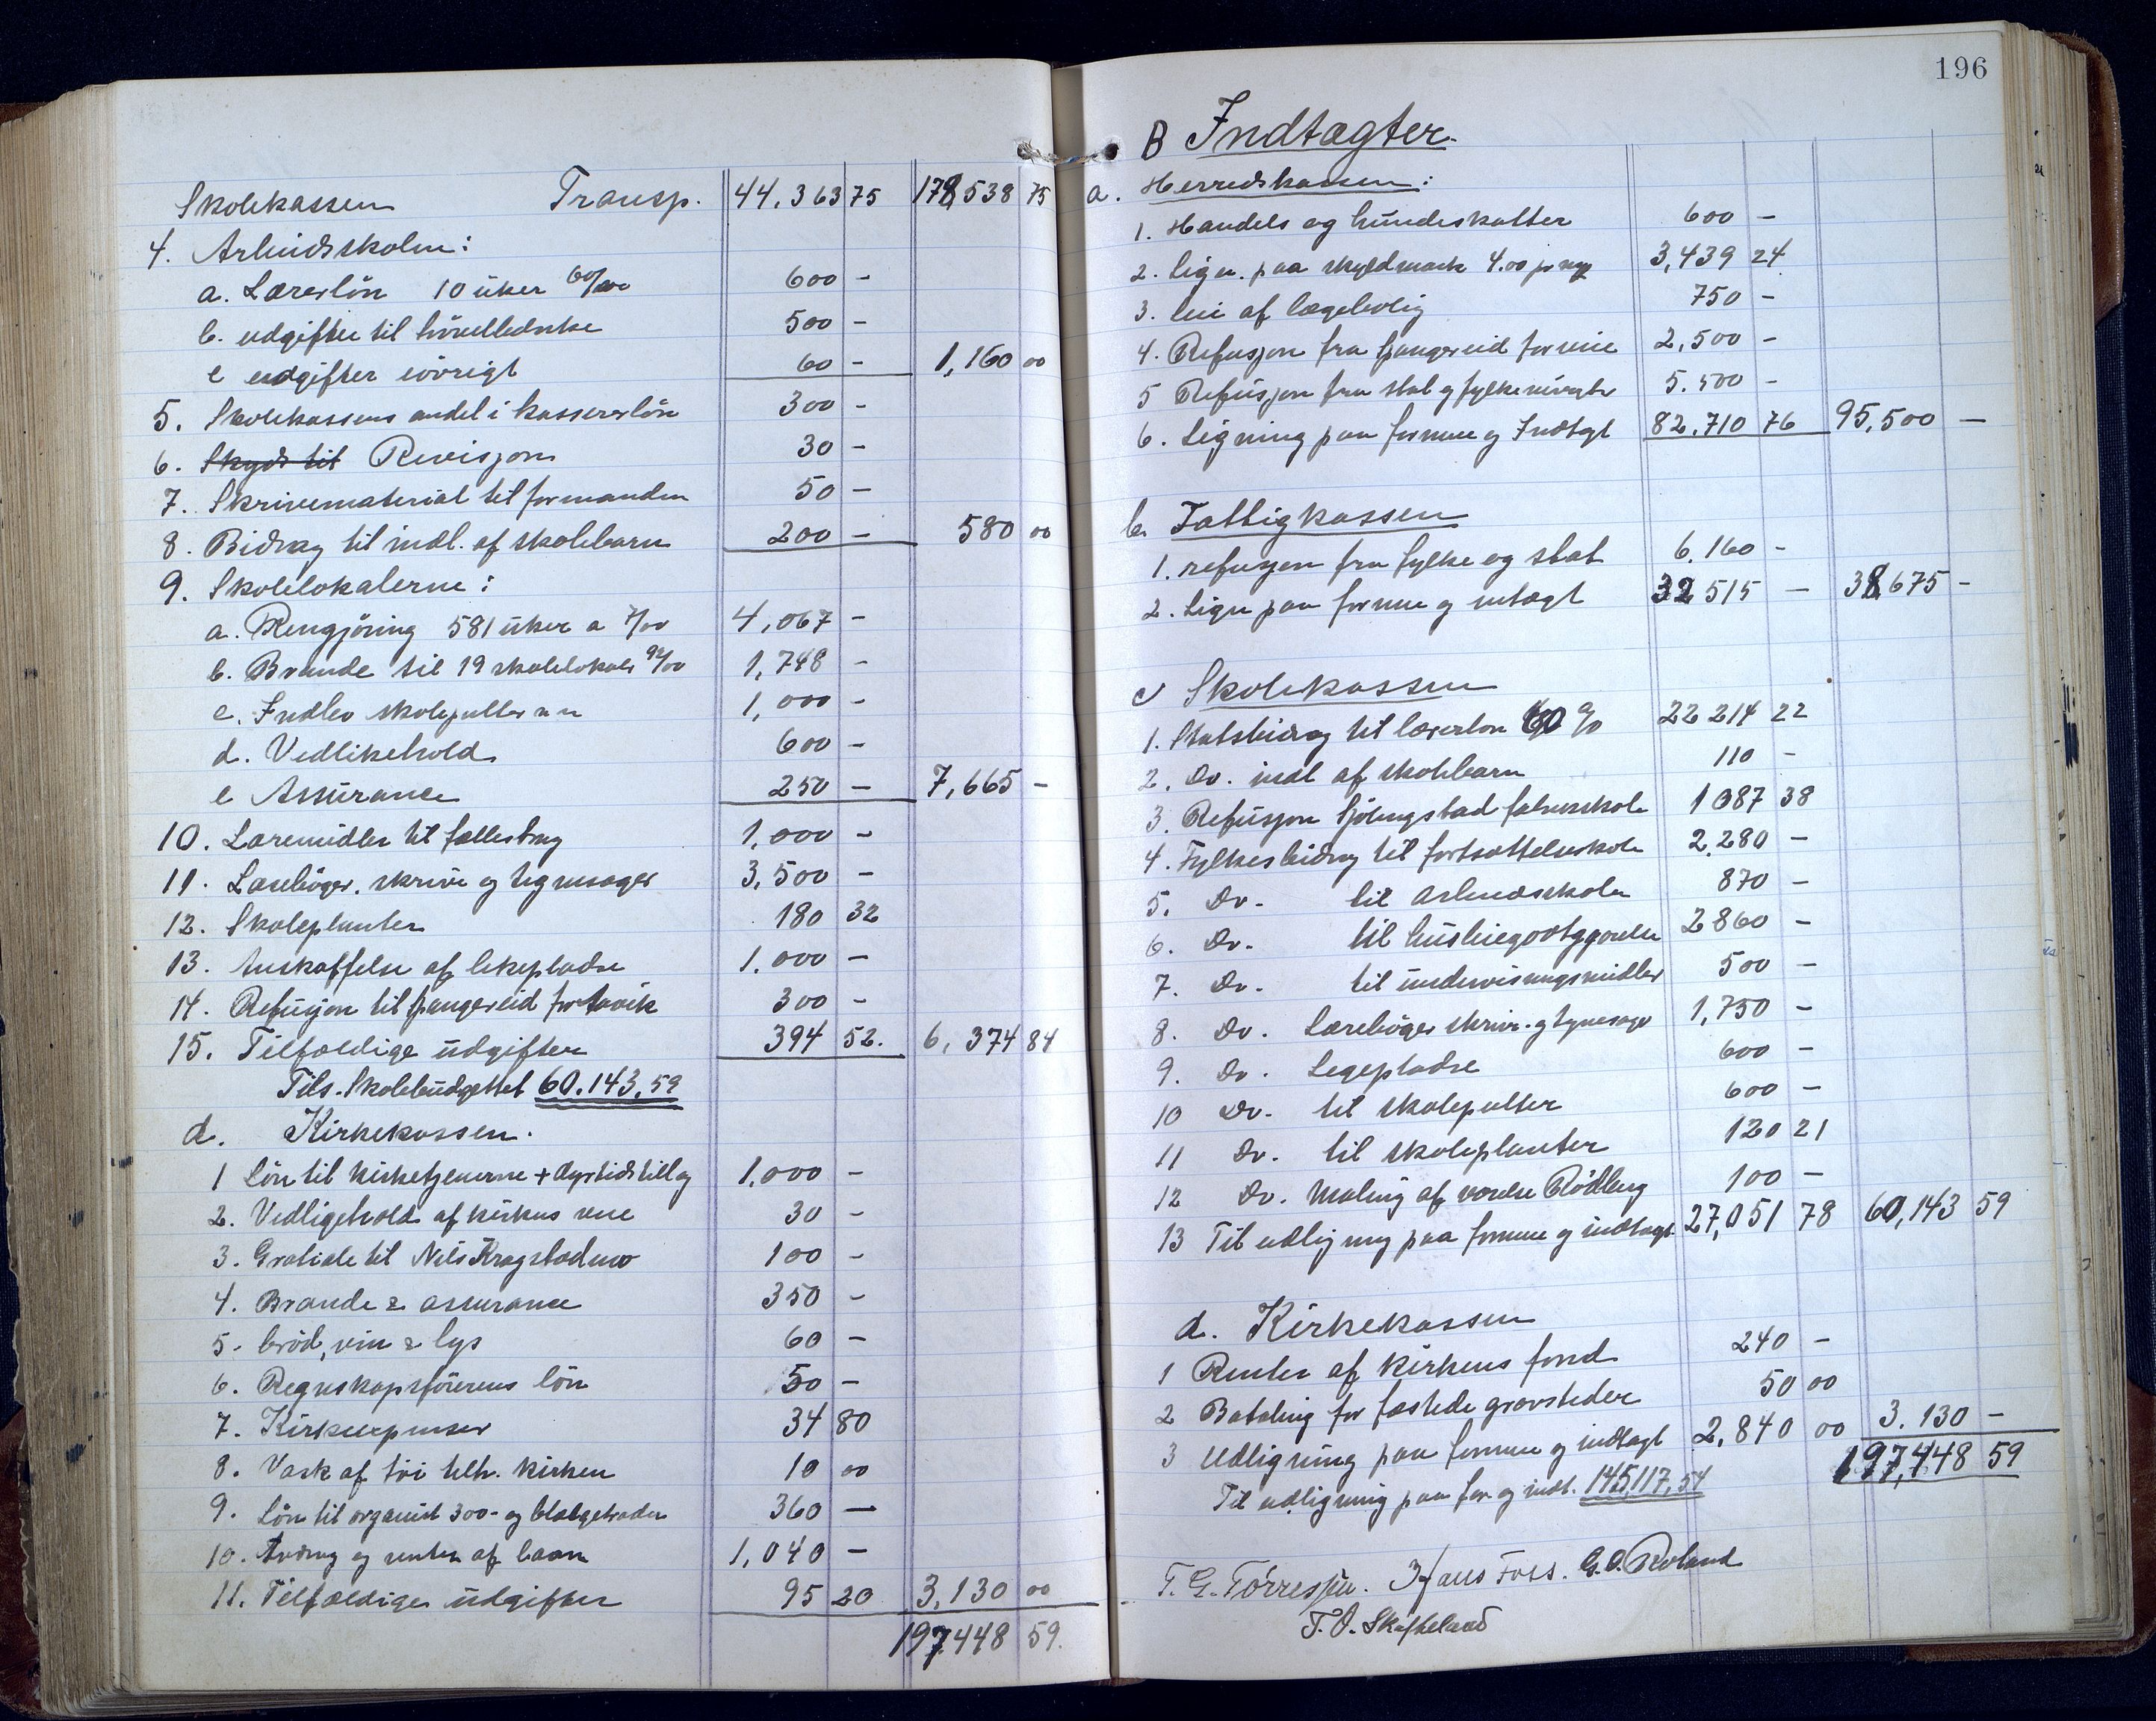 Skolekassen Transp. 44.363 75 178,538 75
4. Arbeidsskolen:
a. Lærerløn 10 uker 60/00 600 -
b. udgifter til 500 -
c udgifter iøvrigt 60 - 1,160 00
5. Skolekassens andel i kassererløn 300 -
6. Skyds til Revisjon 30 -
7. Skrivematerial til formanden 50 -
8. Bidrag til indl. af skolebarn 200 - 580 00
9. Skolelokalerne:
a. Rengjøring 581 uker a 7/00 4,067 -
b. Brænde til 19 skolelokaler 92/00 1,748 -
c. Indlev skolepulter 1,000 -
d. Vedlikehold 600 -
e Assurance 250 - 7,665 -
10. Læremidler til fællesbrug 1,000 -
11. Lærebøger, skrive og tegnesager 3,500 -
12. Skoleplanter 180 32
13. Anskaffelse af lekepladse 1.000 -
14. Refusjon til Spangereid for 300 -
15. Tilfældige udgifter 394 52. 6,374 84
Tils. Skolebudgettet 60.143,59
d. Kirkekassen.
1 Løn til kirketjenerne + dyrtidstillæg 1.000 -
2. Vedligehold af kirkens 30 -
3. Gratiale til Nils 100 -
4. Brænde & assurance 350 -
5. brød, vin & lys 60 -
6. Regnskapsførerens løn 50 -
7. 34 80
8. Vask af tøi tilh. kirken 10 00
9. Løn til organist 300- og 360 -
10. Avdrag og renter af laan 1,040 -
11. Tilfældige udgifter 95 20 3,130 00
197.448 59.
196
B Indtægter.
a. Herredskassen:
1. Handels og hundeskatter 600 -
2. Lign. paa skyldmark 4.00 pr 3,439 24
3. leie af lægebolig 750 -
4. Refusjon fra Spangereid for 2,500 -
5 Refusjon fra stat og fylke 5.500 -
6. Ligning paa formue og Indtægt 82.710 76 95,500 -
b. Fattigkassen
1. refusjon fra fylke og stat 6.160 -
2. Lign paa formue og indtægt 32 515 - 38,675 -
c Skolekassen
1. Statsbidrag til lærerløn 60 % 22 214 22
2. Do. indl af skolebarn 110 -
3. Refusjon Fjølungstad 1087 38
4. Fylkesbidrag til fortsættelseskole 2.280 -
5. Do. til arbeidsskole 870 -
6. Do. til 2860 -
7. Do. til undervisningsmidler 500 -
8. Do. Lærebøger skrive- og tegnesager 1,750 -
9. Do. Legepladse 600 -
10 Do. til skolepulter 600 -
11 Do. til skoleplanter 120 21
12 Do. Maling af 100 -
13 Til udligning paa formue og indtægt 27,051 78 60,143 59
d. Kirkekassen
1 Renter af kirkens fond 240 -
2 Betaling for fæstede gravsteder 50 00
3 Udligning paa formue og indtægt 2,840 00 3.130 -
Til udligning paa for og indt. 145,117,54 197,448 59
T. G. Tørressen. Hans Foss. G. O. Roland
T. O. Skofteland